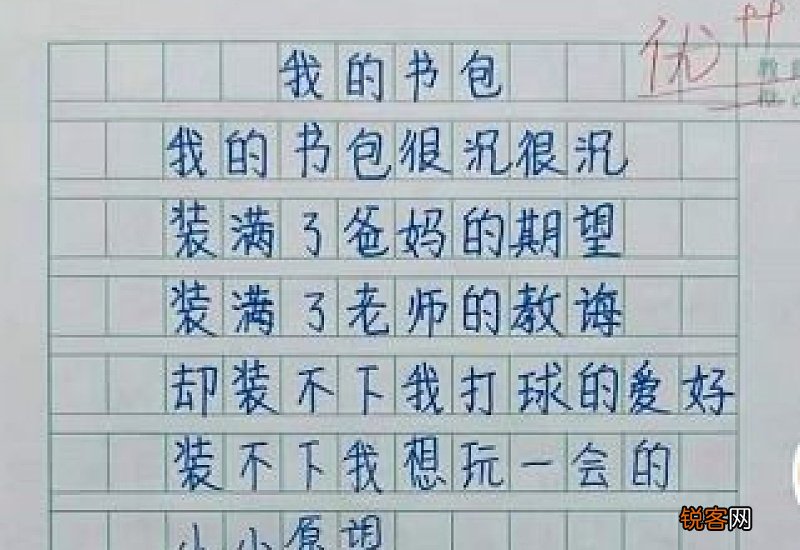 优
我的书包
我的书包很沉很沉
装满了爸妈的期望
装满了老师的教诲
却装不下我打球的爱好
装不下我想玩一会的
小小愿望
锐客网